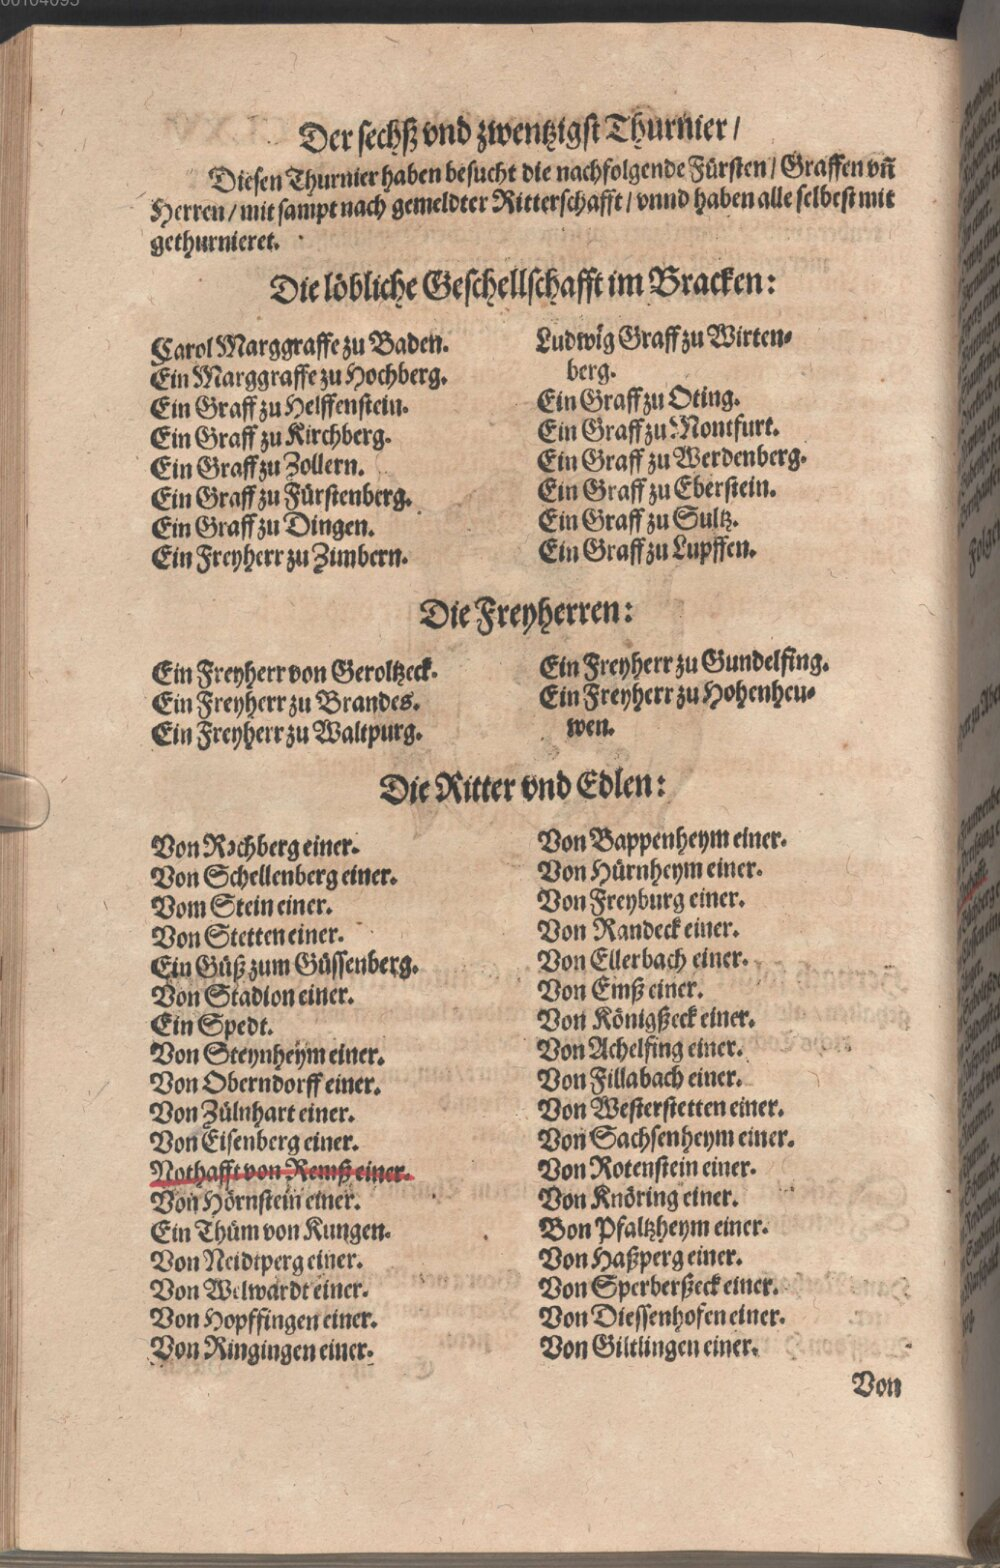 Der sechß vnd zwentzigst Thurnier /
Diesen Thurnier haben besucht die nachfolgende Fürsten / Graffen vñ
Herren / mit sampt nach gemeldter Ritterschafft / vnnd haben alle selbest mit
gethurnieret.
Die löbliche Geschellschafft im Bracken:
Carol Marggraffe zu Baden.
Ein Marggraffe zu Hochberg.
Ein Graff zu Helffenstein.
Ein Graff zu Kirchberg.
Ein Graff zu Zollern.
Ein Graff zu Fürstenberg.
Ein Graff zu Dingen.
Ein Freyherr zu Zimbern.
Ludwig Graff zu Wirten-
berg.
Ein Graff zu Oting.
Ein Graff zu Montfurt.
Ein Graff zu Werdenberg.
Ein Graff zu Eberstein.
Ein Graff zu Sultz.
Ein Graff zu Lupffen.
Die Freyherren:
Ein Freyherr von Geroltzeck.
Ein Freyherr zu Brandes.
Ein Freyherr zu Waltpurg.
Ein Freyherr zu Gundelfing.
Ein Freyherr zu Hohenheu-
wen.
Die Ritter vnd Edlen:
Von Rechberg einer.
Von Schellenberg einer.
Vom Stein einer.
Von Stetten einer.
Ein Güß zum Güssenberg.
Von Stadion einer.
Ein Spedt.
Von Steynheym einer.
Von Oberndorff einer.
Von Zülnhart einer.
Von Eisenberg einer.
Nothafft von Remß einer.
Von Hörnstein einer.
Ein Thüm von Kungen.
Von Neidtperg einer.
Von Welwardt einer.
Von Hopffingen einer.
Von Ringingen einer.
Von Bappenheym einer.
Von Hürnheym einer.
Von Freyburg einer.
Von Randeck einer.
Von Ellerbach einer.
Von Emß einer.
Von Königßeck einer.
Von Achelfing einer.
Von Fillabach einer.
Von Westerstetten einer.
Von Sachsenheym einer.
Von Rotenstein einer.
Von Knöring einer.
Bon Pfaltzheym einer.
Von Haßperg einer.
Von Sperberßeck einer.
Von Diessenhofen einer.
Von Giltlingen einer.
Von